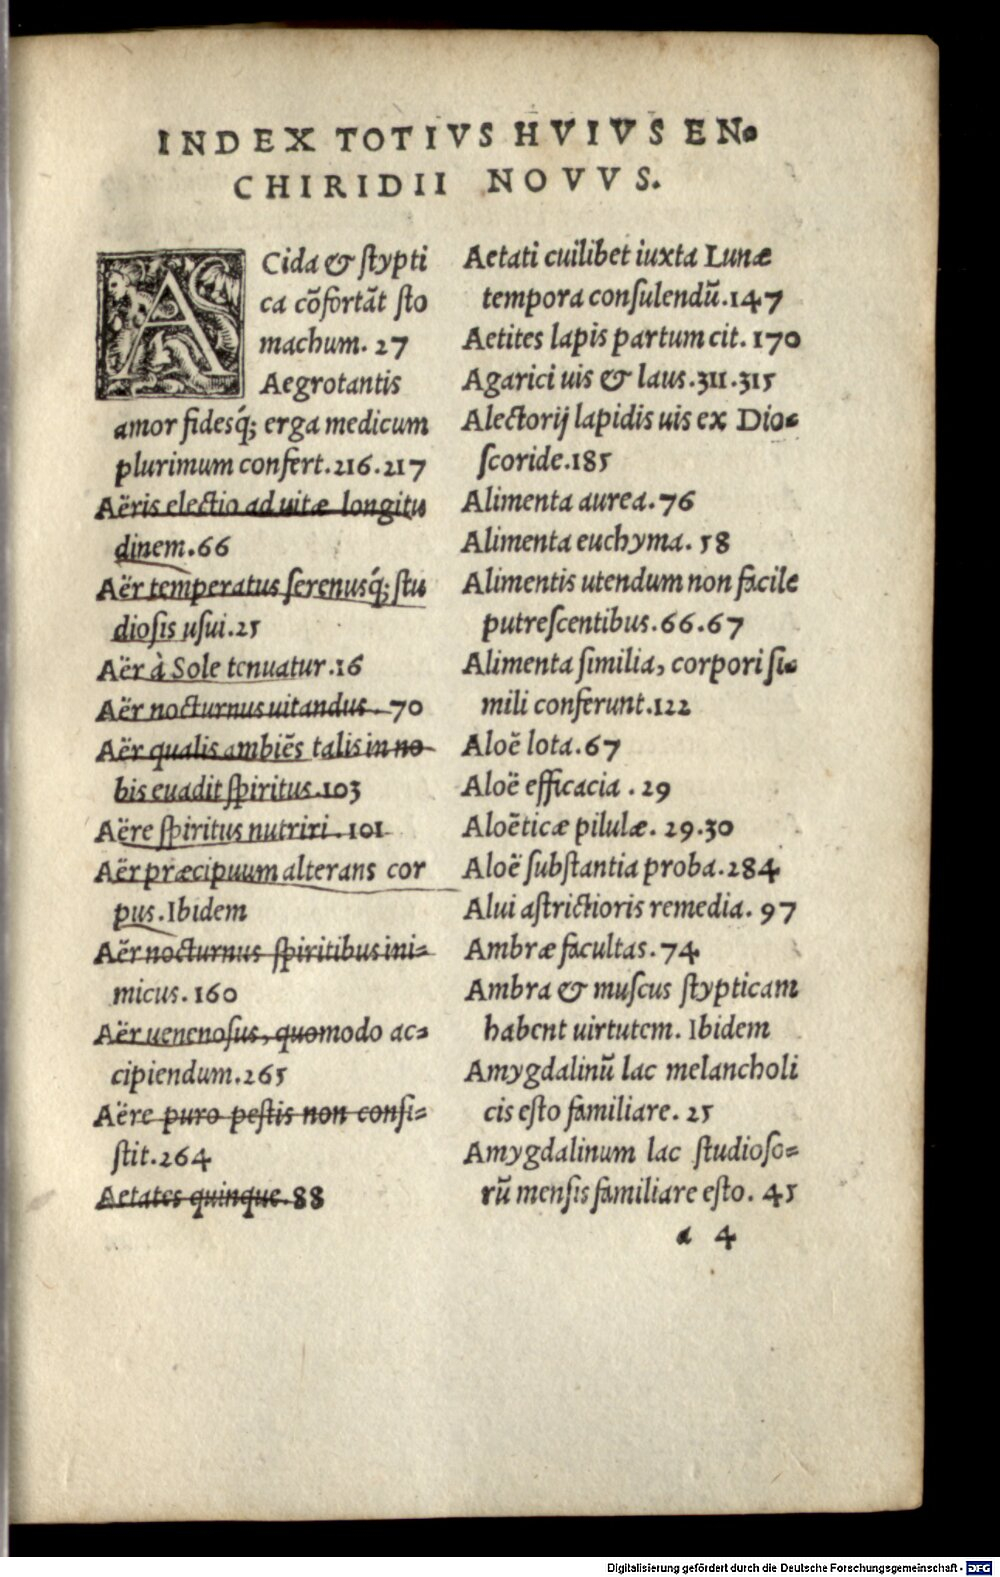 INDEX TOTIVS HVIVS EN-
CHIRIDII NOVVS.
ACida & stypti
ca cõfortãt sto
machum. 27
Aegrotantis
amor fidesq́; erga medicum
plurimum confert.216.217
Aëris electio ad uitæ longitu
dinem.66
Aër temperatus serenusq́; stu
diosis usui.25
Aër à Sole tenuatur.16
Aër nocturnus uitandus. 70
Aër qualis ambiẽs talis in no-
bis euadit spiritus.103
Aëre spiritus nutriri.101
Aër præcipuum alterans cor
pus.Ibidem
Aër nocturnus spiritibus ini-
micus.160
Aër uenenosus, quomodo ac-
cipiendum.265
Aëre puro pestis non consi-
stit.264
Aetates quinque.88
Aetati cuilibet iuxta Lunæ
tempora consulendũ.147
Aetites lapis partum cit. 170
Agarici uis & laus.311.315
Alectorij lapidis uis ex Dio-
scoride.185
Alimenta aurea.76
Alimenta euchyma. 58
Alimentis utendum non facile
putrescentibus.66.67
Alimenta similia, corpori si-
mili conferunt.122
Aloë lota.67
Aloë efficacia . 29
Aloëticæ pilulæ. 29.30
Aloë substantia proba.284
Alui astrictioris remedia. 97
Ambræ facultas.74
Ambra & muscus stypticam
habent uirtutem. Ibidem
Amygdalinũ lac melancholi
cis esto familiare. 25
Amygdalinum lac studioso-
rũ mensis familiare esto. 45
a 4
Digitalisierung gefördert durch die Deutsche Forschungsgemeinschaft - DFG